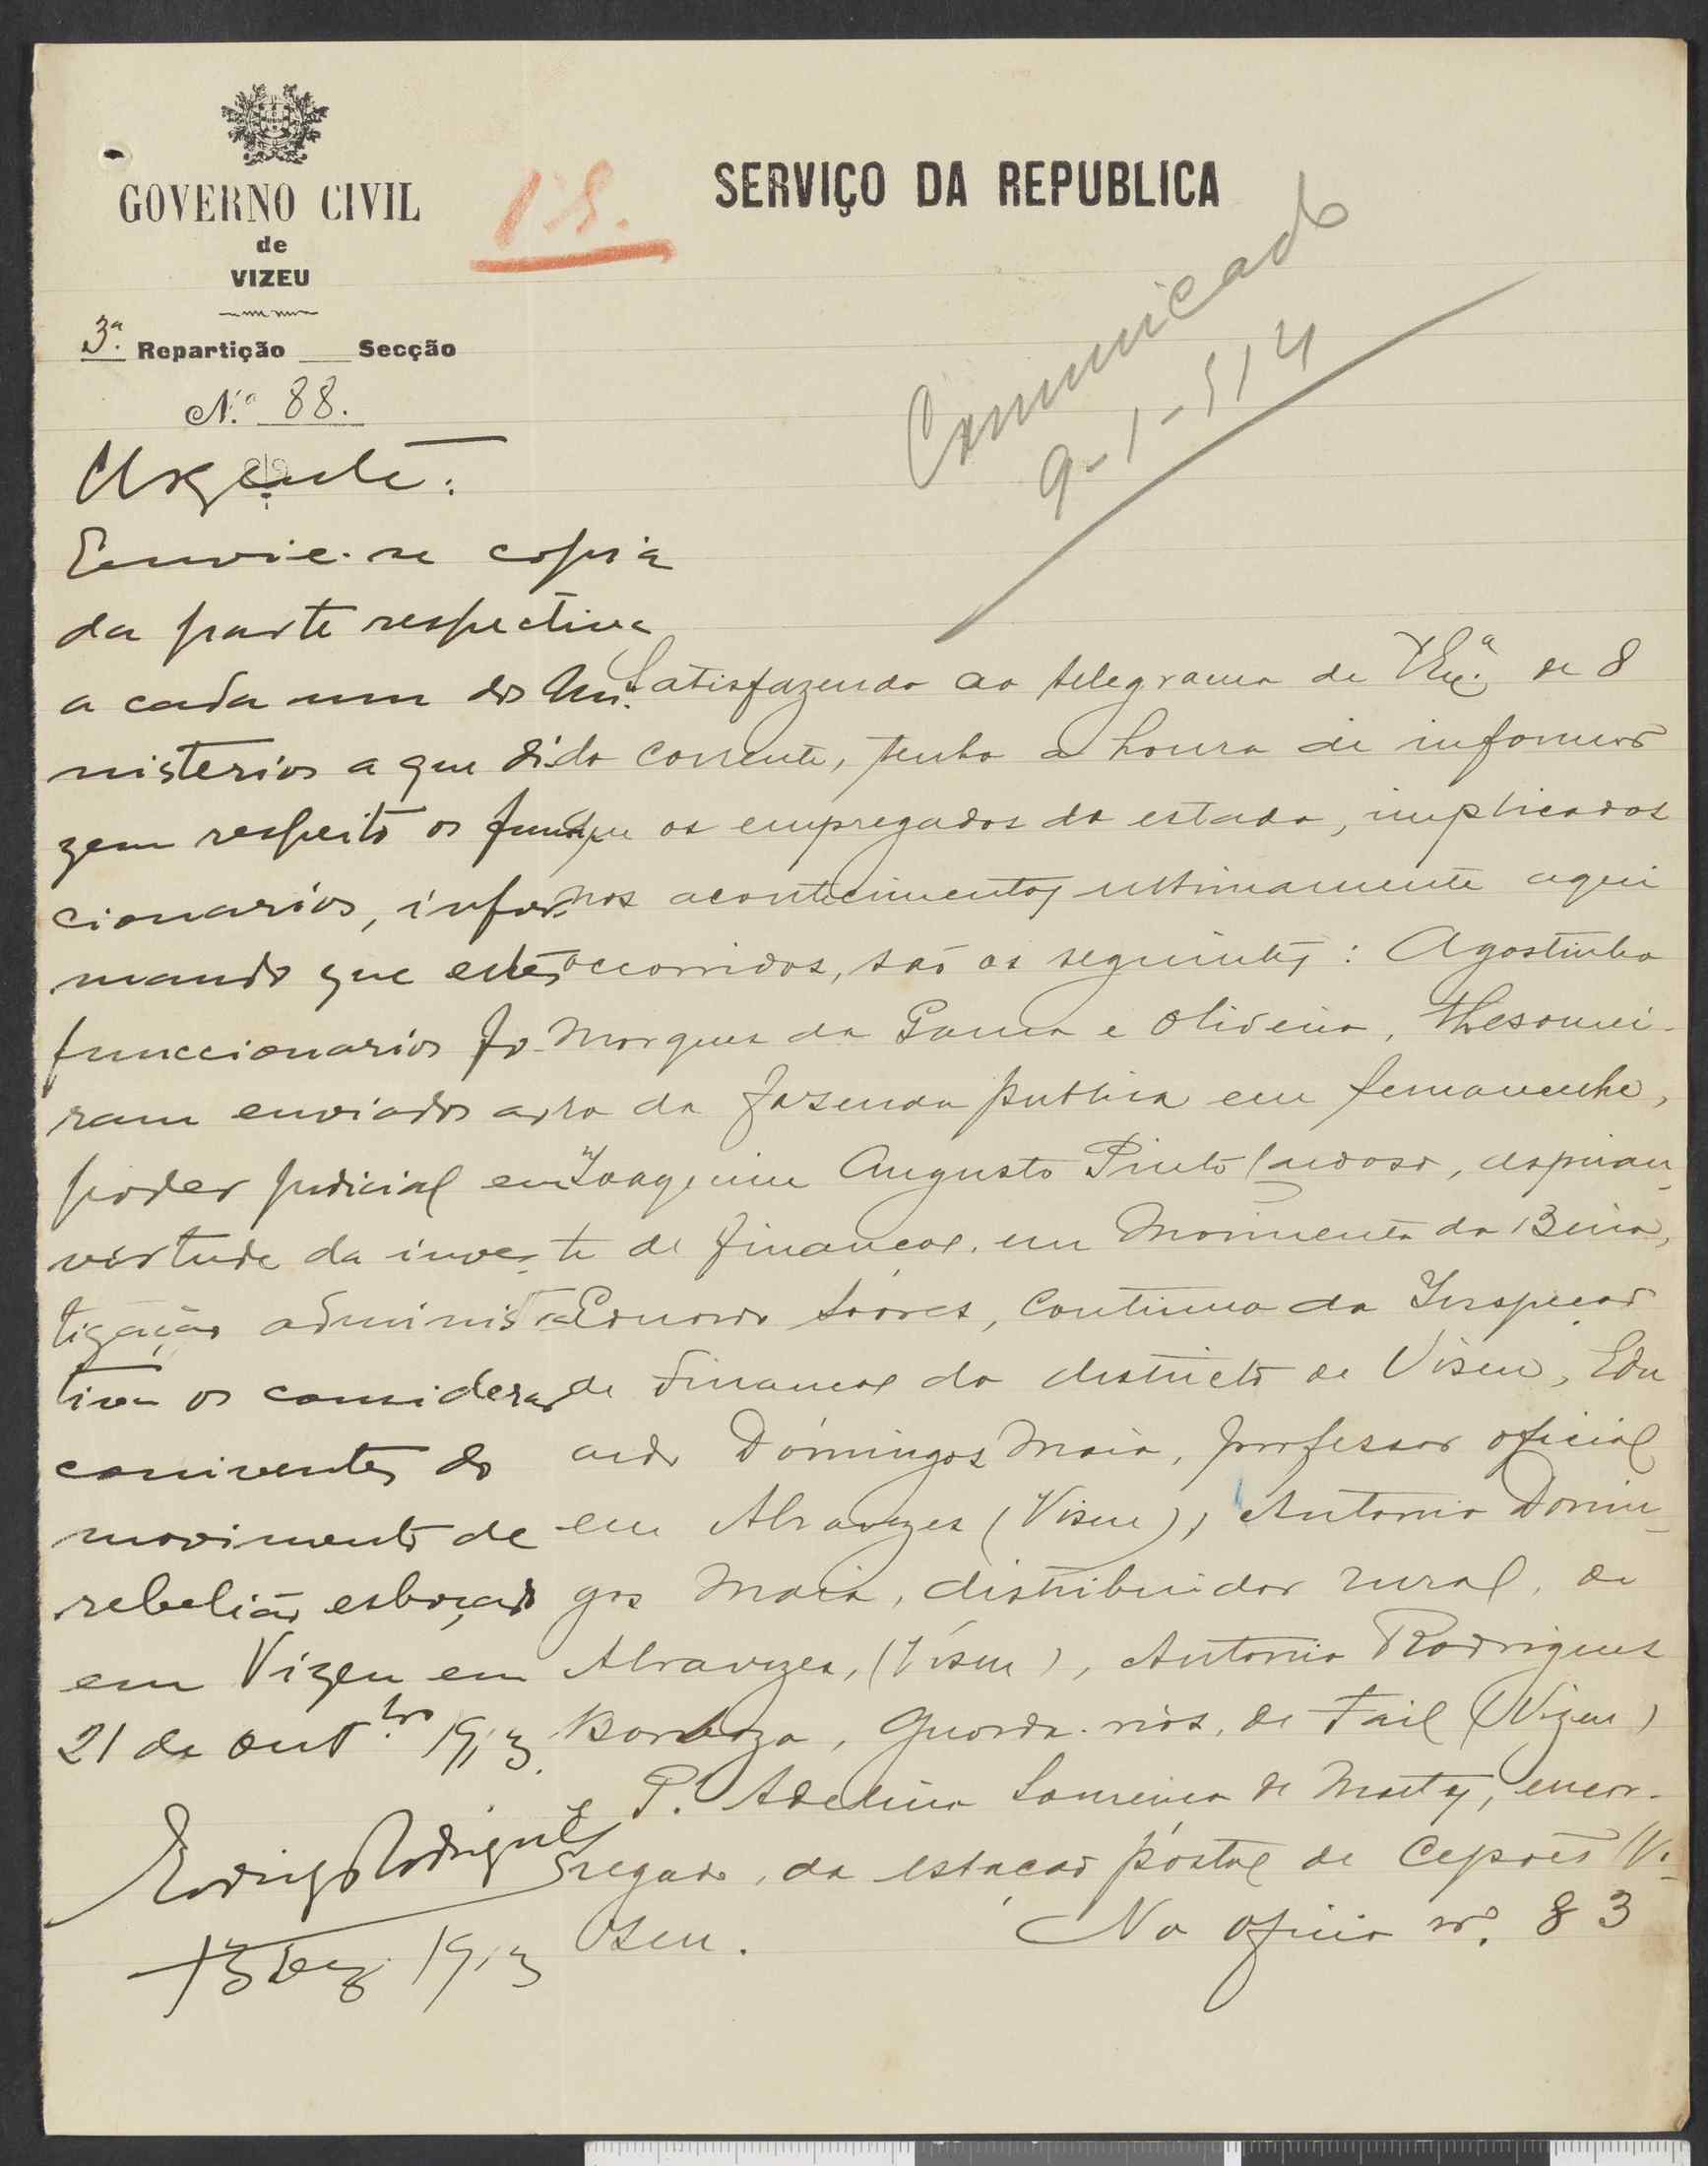 GOVERNO CIVIL
de
VIZEU
3.ª Repartição ___ Secção
N.º 88.
SERVIÇO DA REPUBLICA
Communicado
9-1-914
Urgente:
Envie-se copia
da parte respectiva
a cada um dos Mi-
nisterios a que di-
zem respeito os func-
cionarios, infor-
mando que estes
funccionarios fo-
ram enviados ao
poder judicial em
virtude da inves-
tigação administra-
tiva os considerar
coniventes do
movimento de
rebelião esboçado
em Vizeu em
21 de Outbro 1913.
Rodrigo Rodrigues
13 Dez 1913
Satisfazendo ao telegrama de V Exª de 8
do corrente, tenho a honra de informar
que os empregados do estado, implicados
nos acontecimentos ultimamente aqui
occorridos, são os seguintes: Agostinho
Marques da Gama e Oliveira, thesourei-
ro da fazenda publica em Penavenke,
Joaquim Augusto Pinto Cardoso, aspiran-
te de finanças em Moimenta da Beira,
Eduardo Soares, Continuo da Inspeçao
de Finanças do districto de Viseu, Edu
ardo Domingos Maia, professor oficial
em Abravezes (Viseu), Antonio Domin-
gos Maia, distribuidor rural, de
Abravezes, (Viseu), Antonio Rodrigues
Barboza, Guarda-rios, de Fail (Vizeu)
e P. Adelino Loureiro de Mattos, encar-
regado, da estacao póstal de Cepões (Vi-
seu. No oficio nº. 83